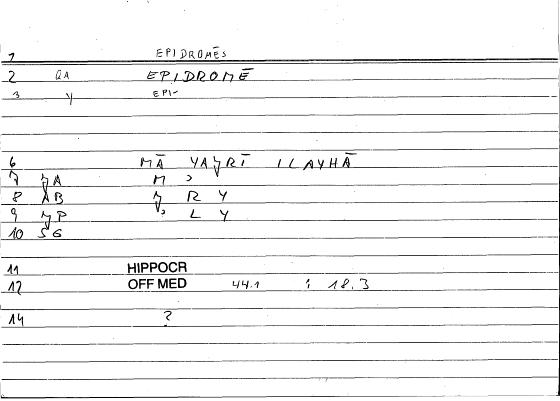 1 EPIDROMĒS
2 QA EPIDROMĒ
3 Y EPI-
6 MĀ YAǦRĪ ILAYHĀ
7 ǦA M ʾ
8 AB Ǧ R Y
9 ǦP ʾ L Y
10 SG
11 HIPPOCR
12 OFF MED 44.1 : 18.3
14 ?